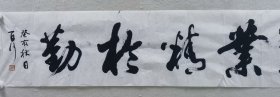 業精於勤
癸酉秋日